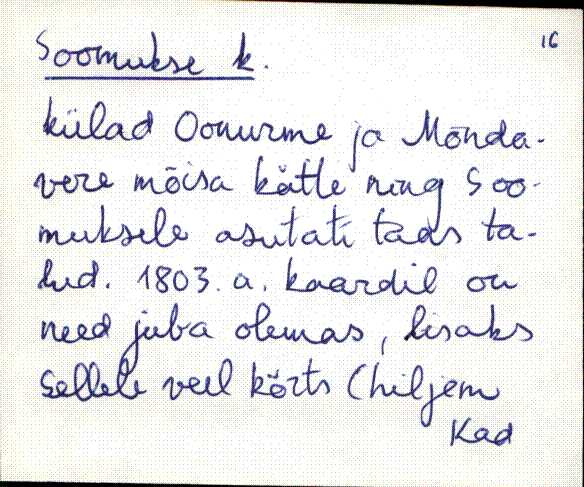 16
Soomukse k.
külad Oonurme ja Mõnda-
vere mõisa kätte ning Soo-
muksele asutati taas ta-
lud. 1803. a. kaardil on
need juba olemas, lisaks
sellele veel kõrts (hiljem
Kad